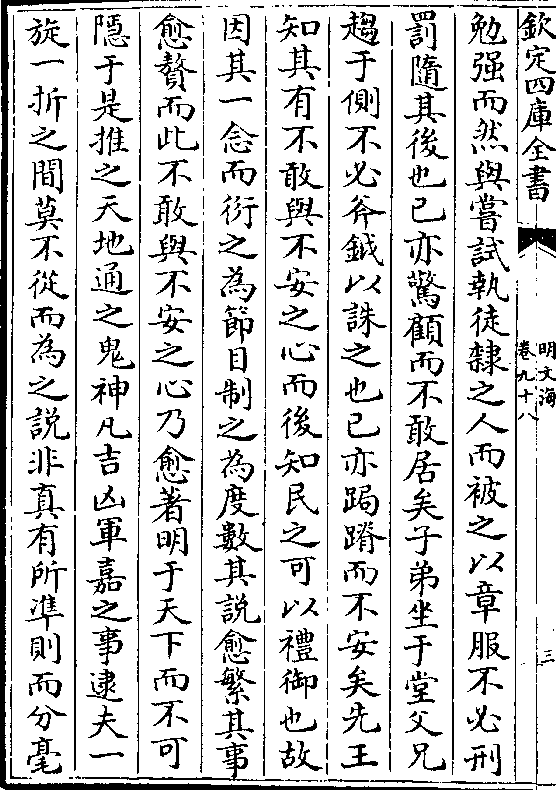 欽定四庫全書
明文海
卷九十八
三
勉强而然與嘗試執徒隸之人而被之以章服不必刑
罰隨其後也已亦驚顧而不敢居矣子弟坐于堂父兄
趨于側不必斧鉞以誅之也已亦跼蹐而不安矣先王
知其有不敢與不安之心而後知民之可以禮御也故
因其一念而衍之為節目制之為度數其説愈繁其事
愈贅而此不敢與不安之心乃愈著明于天下而不可
隱于是推之天地通之鬼神凡吉凶軍嘉之事逮夫一
旋一折之間莫不從而為之説非真有所準則而分毫